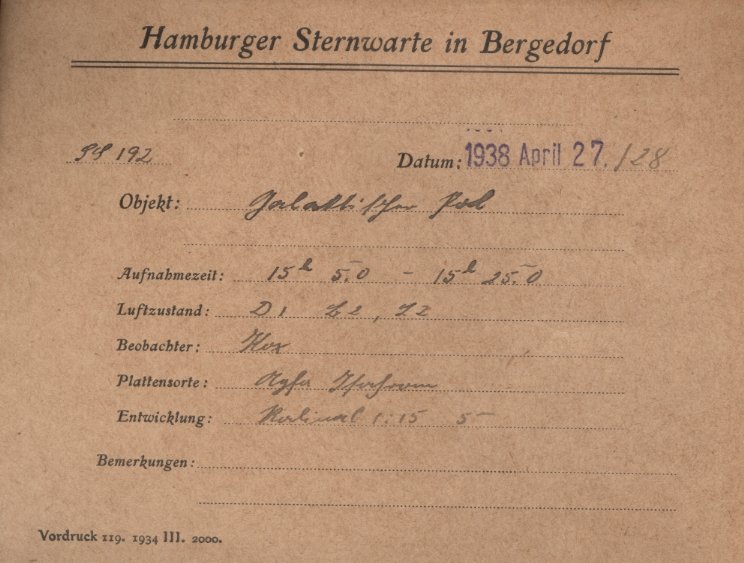 Hamburger Sternwarte in Bergedorf
192 Datum: 1938 April 27. /28
Objekt: Galaktischer Pol
Aufnahmezeit: 15h 5.0 - 15h 25.0
Luftzustand: D1 L2, Z2
Beobachter:
Plattensorte: Agfa Isochrom
Entwicklung: Rodinal 1:15 5
Bemerkungen:
Vordruck 119. 1934 III. 2000.